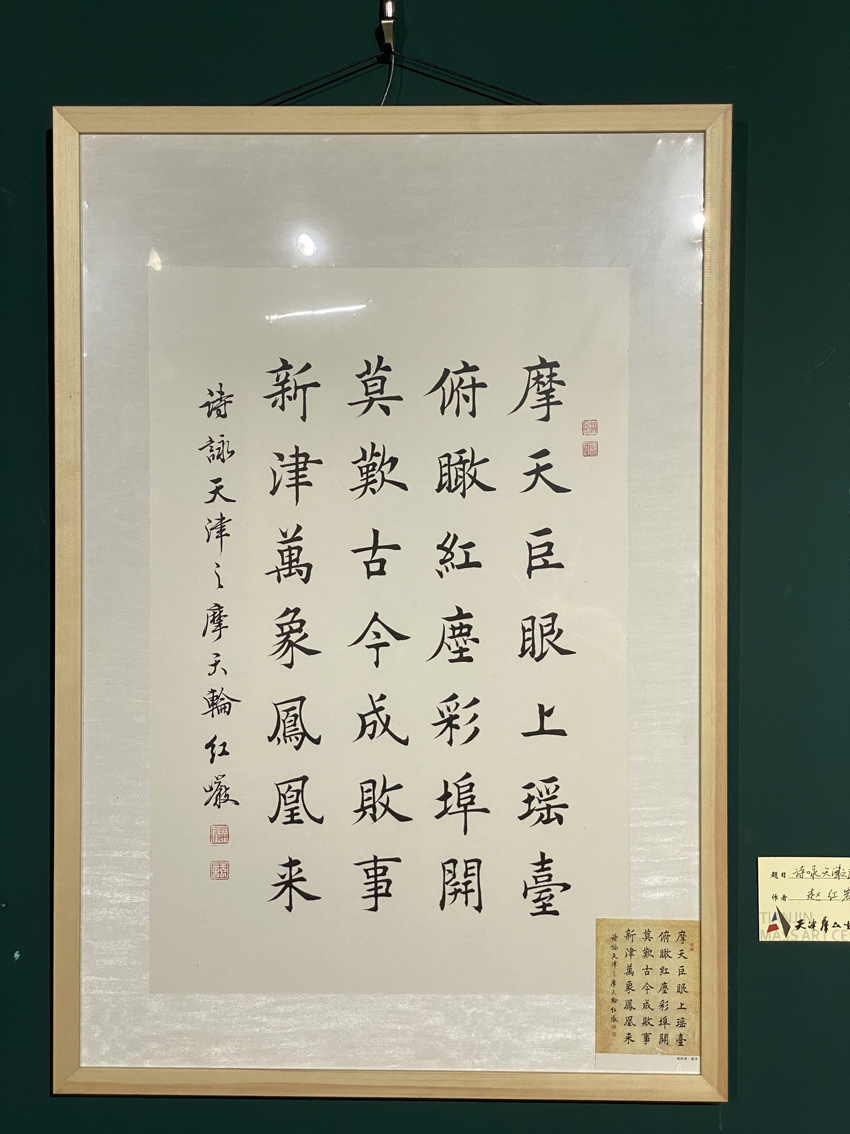 摩天巨眼上瑶臺
俯瞰紅塵彩埠開
莫歎古今成敗事
新津萬象鳳凰来
诗詠天津之摩天輪 红巖
摩天巨眼上瑶臺
俯瞰紅塵彩埠開
莫歎古今成敗事
新津萬象鳳凰来
诗詠天津之摩天輪 红巖
题目 诗咏天津之
作者 赵红岩
TIANJIN
MASS ART CE
天津群众